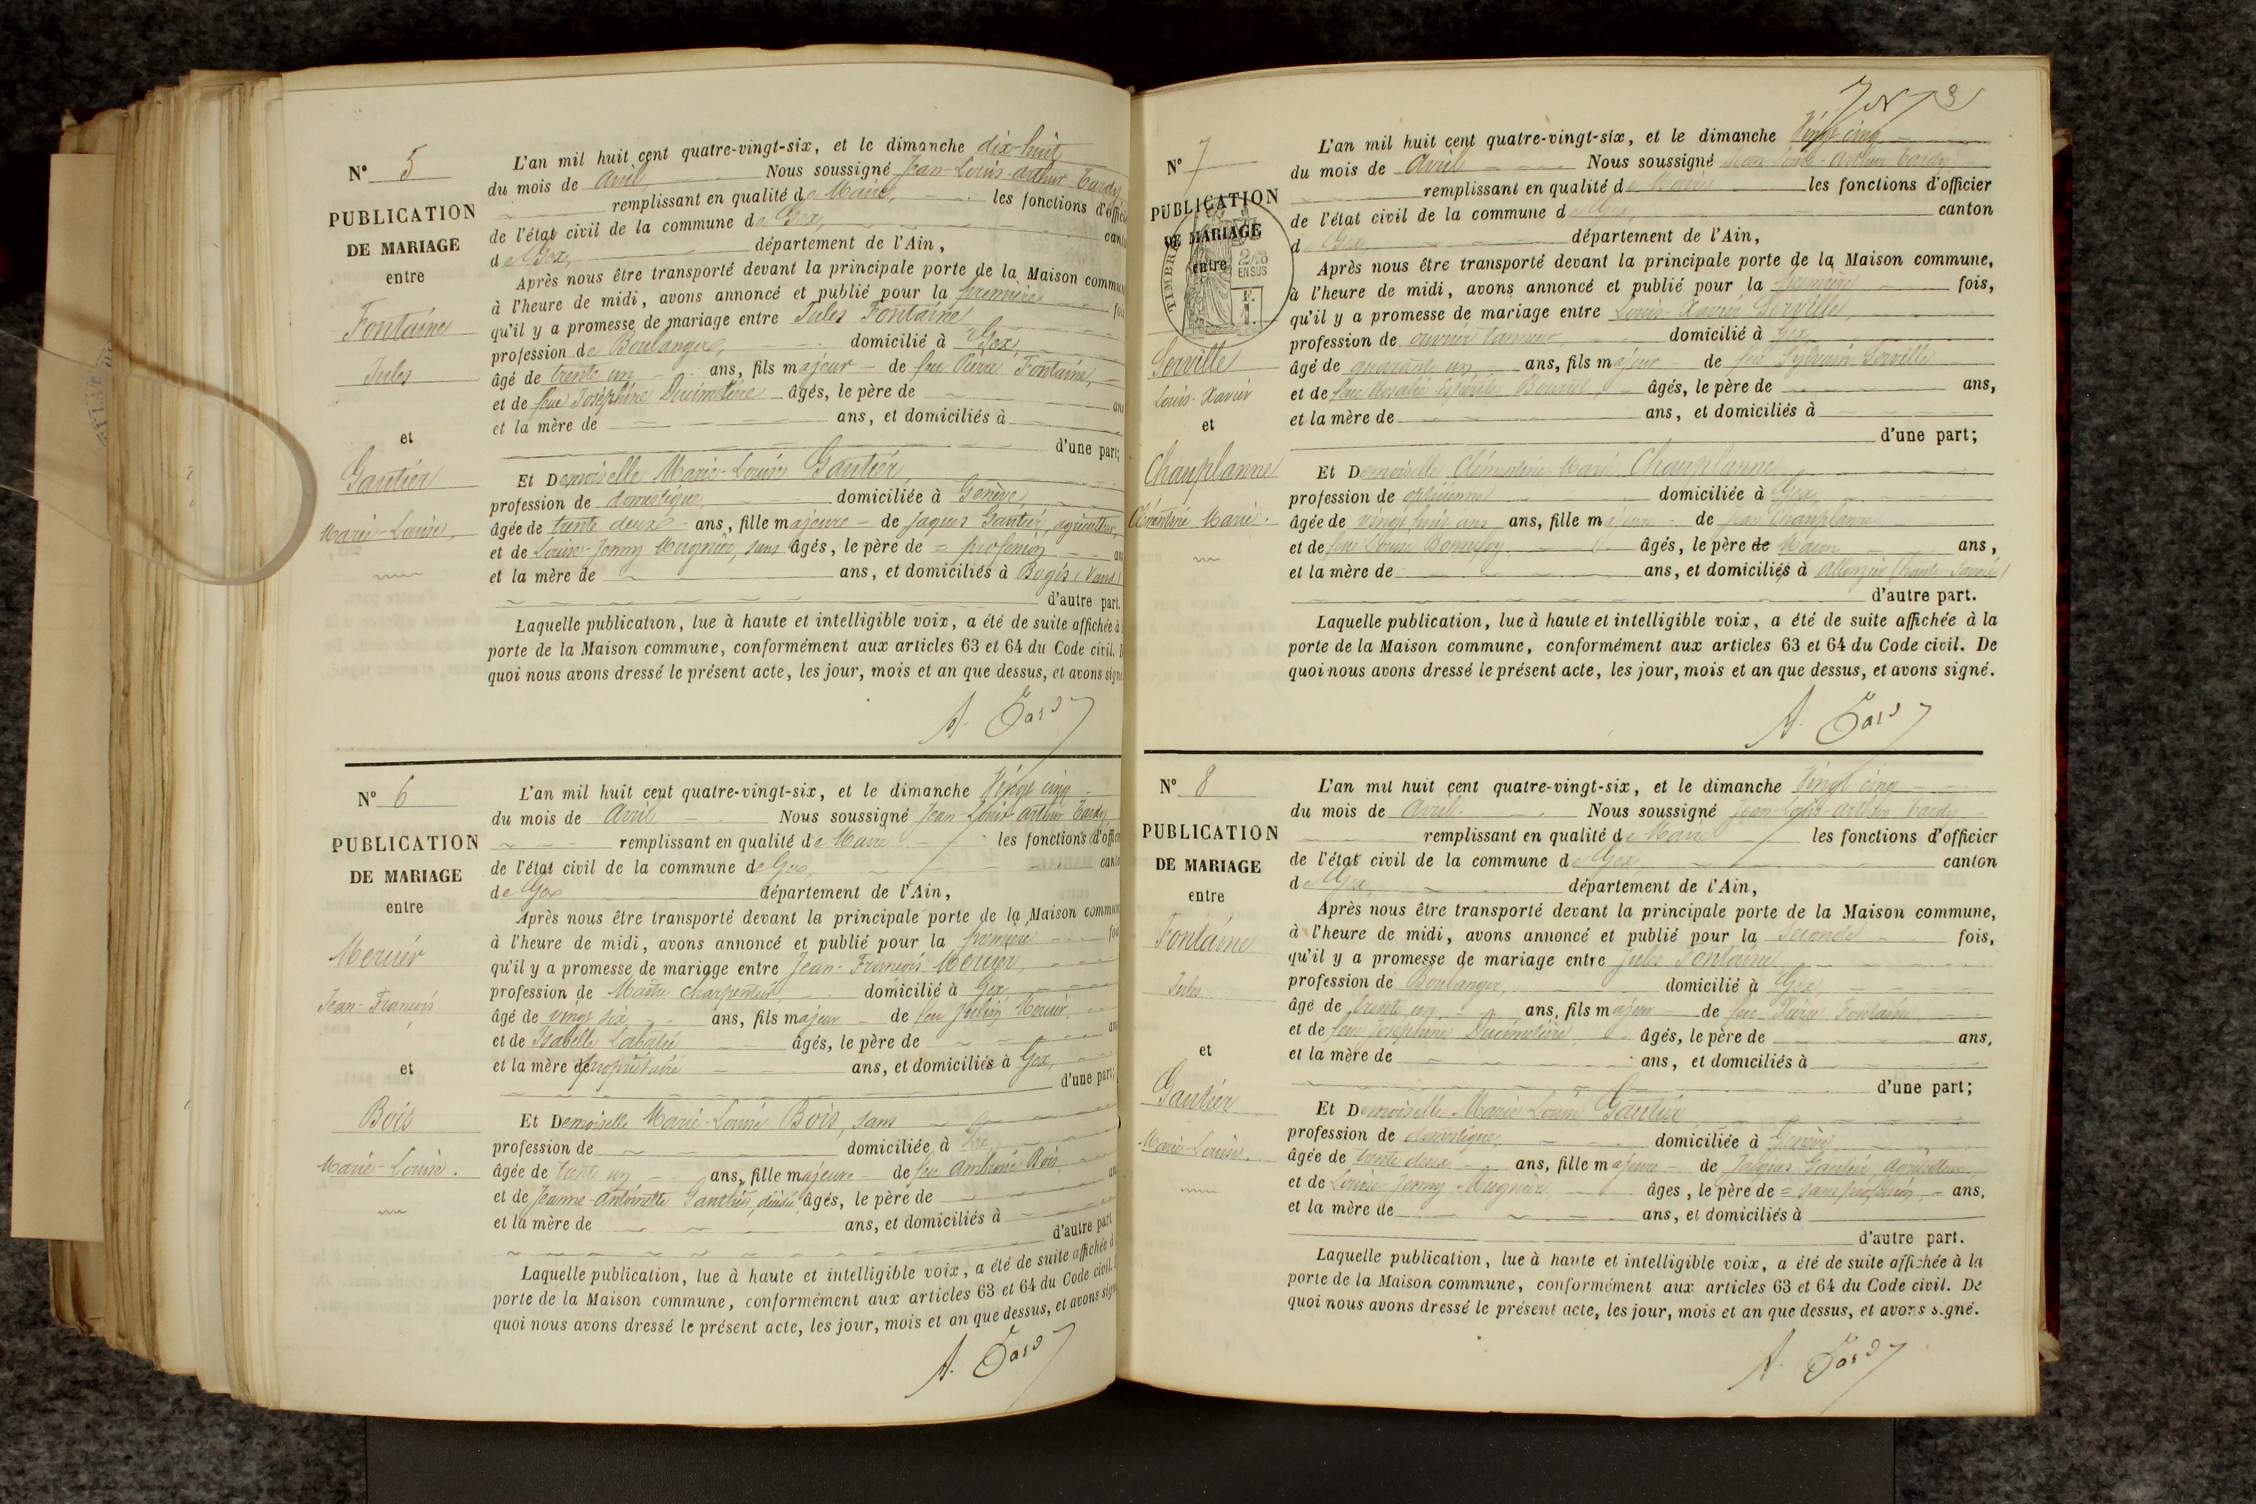 N° 5
PUBLICATION
DE MARIAGE
entre
Fontaine
Jules
et
Gautier
Marie-Louise.
L'an mil huit cent quatre-vingt-six, et le dimanche dix-huit
du mois de avril Nous soussigné Jean-Louis-arthur Tardy
remplissant en qualité de Maire, les fonctions d'offici
de l'état civil de la commune de Gex, cant
de Gex, département de l'Ain,
Après nous être transporté devant la principale porte de la Maison commun
à l'heure de midi, avons annoncé et publié pour la première foi
qu'il y a promesse de mariage entre Jules Fontaine
profession de Boulanger, domicilié à Gex,
âgé de trente un ans, fils majeur de feu Pierre Fontaine,
et de feue Joséphine âgés, le père de an
et la mère de ans, et domiciliés à
d'une part;
Et Demoiselle Marie-Louise Gautier
profession de domestique domiciliée à Genève,
âgée de trente deux ans, fille majeure de Jaques Gautier, agriculteur,
et de Louise-Jenny Mugnier, sans âgés, le père de = profession an
et la mère de ans, et domiciliés à Bogis (Vaud)
d'autre part.
Laquelle publication, lue à haute et intelligible voix, a été de suite affichée à
porte de la Maison commune, conformément aux articles 63 et 64 du Code civil. D
quoi nous avons dressé le présent acte, les jour, mois et an que dessus, et avons signé
A. Tardy
N° 6
PUBLICATION
DE MARIAGE
entre
Mercier
Jean-François
et
Bois
Marie-Louise.
L'an mil huit cent quatre-vingt-six, et le dimanche Vingt cinq
du mois de Avril Nous soussigné Jean-Louis arthur Tardy,
remplissant en qualité de Maire les fonctions d'offici
de l'état civil de la commune de Gex, canto
de Gex département de l'Ain,
Après nous être transporté devant la principale porte de la Maison commun
à l'heure de midi, avons annoncé et publié pour la première foi
qu'il y a promesse de mariage entre Jean-François Mercier,
profession de Maître charpentier, domicilié à Gex,
âgé de vingt six ans, fils majeur de feu Julien Mercier,
et de Isabelle âgés, le père de an
et la mère de propriétaire ans, et domiciliés à Gex,
d'une part;
Et Demoiselle Marie-Louise Bois, sans
profession de domiciliée à
âgée de trente un ans, fille majeure de feu Ambroise Bois,
et de Jeanne-Antoinette Gauthier, âgés, le père de
et la mère de ans, et domiciliés à
d'autre part
Laquelle publication, lue à haute et intelligible voix, a été de suite affichée à
porte de la Maison commune, conformément aux articles 63 et 64 du Code civil.
quoi nous avons dressé le présent acte, les jour, mois et an que dessus, et avons sign
A. Tardy
3
N° 7
PUBLICATION
DE MARIAGE
entre
TIMBRE
2/10
EN SUS
F.
1.
Serville
Louis-Xavier
et
Chauplanne
Clémentine Marie.
L'an mil huit cent quatre-vingt-six, et le dimanche Vingt cinq
du mois de Avril Nous soussigné Jean Louis-arthur Tardy
remplissant en qualité de Maire les fonctions d'officier
de l'état civil de la commune de Gex, canton
de Gex département de l'Ain,
Après nous être transporté devant la principale porte de la Maison commune,
à l'heure de midi, avons annoncé et publié pour la première fois,
qu'il y a promesse de mariage entre Louis-Xavier Serville,
profession de ouvrier tanneur, domicilié à Gex
âgé de quarante un ans, fils majeur de feu Sylvain Serville
et de feue Rosalie âgés, le père de ans,
et la mère de ans, et domiciliés à
d'une part;
Et Demoiselle Clémentine Marie Chauplanne
profession de domiciliée à Gex
âgée de vingt huit ans ans, fille majeure de Jean Chauplanne
et de feue Louise Bonnefoy âgés, le père de Maçon ans,
et la mère de ans, et domiciliés à Allonzier (haute Savoie)
d'autre part.
Laquelle publication, lue à haute et intelligible voix, a été de suite affichée à la
porte de la Maison commune, conformément aux articles 63 et 64 du Code civil. De
quoi nous avons dressé le présent acte, les jour, mois et an que dessus, et avons signé.
A. Tardy
N° 8
PUBLICATION
DE MARIAGE
entre
Fontaine
Jules
et
Gautier
Marie-Louise.
L'an mil huit cent quatre-vingt-six, et le dimanche Vingt cinq
du mois de Avril Nous soussigné Jean-Louis-arthur Tardy
remplissant en qualité de Maire les fonctions d'officier
de l'état civil de la commune de Gex, canton
de Gex département de l'Ain,
Après nous être transporté devant la principale porte de la Maison commune,
à l'heure de midi, avons annoncé et publié pour la seconde fois,
qu'il y a promesse de mariage entre Jules Fontaine
profession de Boulanger, domicilié à Gex
âgé de trente un ans, fils majeur de feu Pierre Fontaine
et de feue Joséphine âgés, le père de ans,
et la mère de ans, et domiciliés à
d'une part;
Et Demoiselle Marie Louise Gautier
profession de domestique domiciliée à Genève
âgée de trente deux ans, fille majeure de Jacques Gautier, agriculteur
et de Louise-Jenny Mugnier âgés, le père de = sans profession ans,
et la mère de ans, et domiciliés à
d'autre part.
Laquelle publication, lue à haute et intelligible voix, a été de suite affichée à la
porte de la Maison commune, conformément aux articles 63 et 64 du Code civil. De
quoi nous avons dressé le présent acte, les jour, mois et an que dessus, et avons signé.
A. Tardy